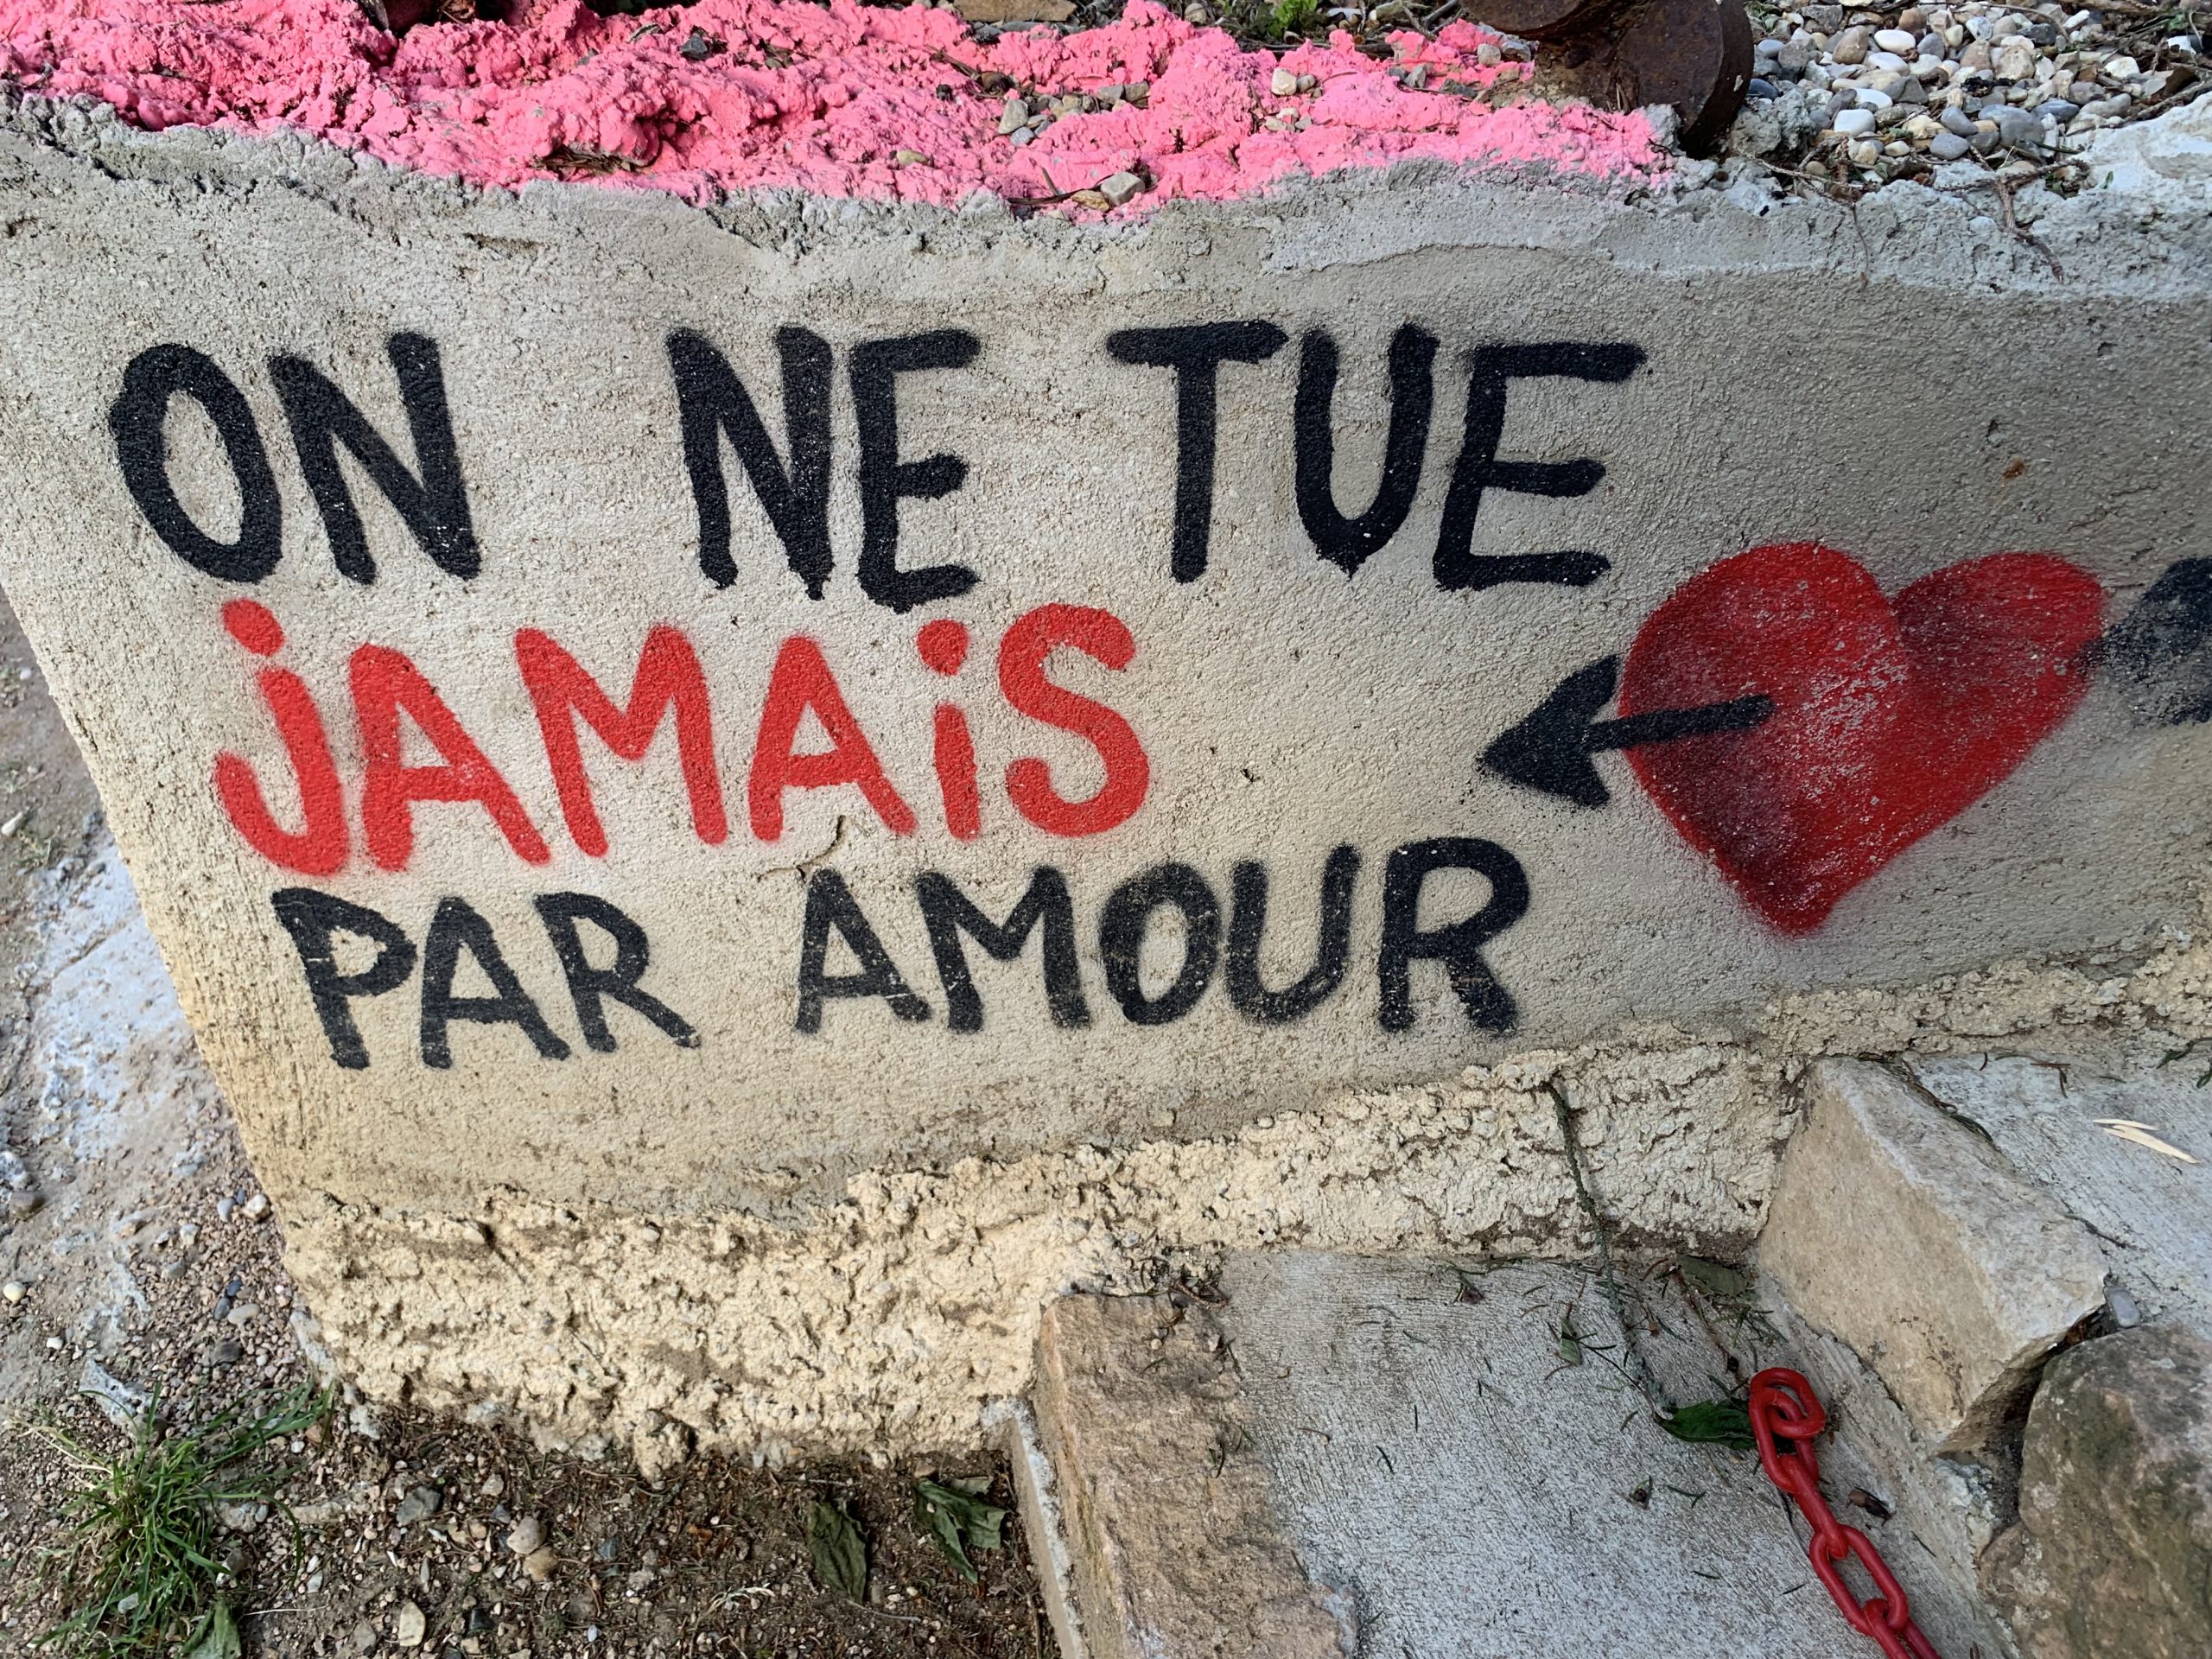 ON NE TUE
jAMAiS
PAR AMOUR